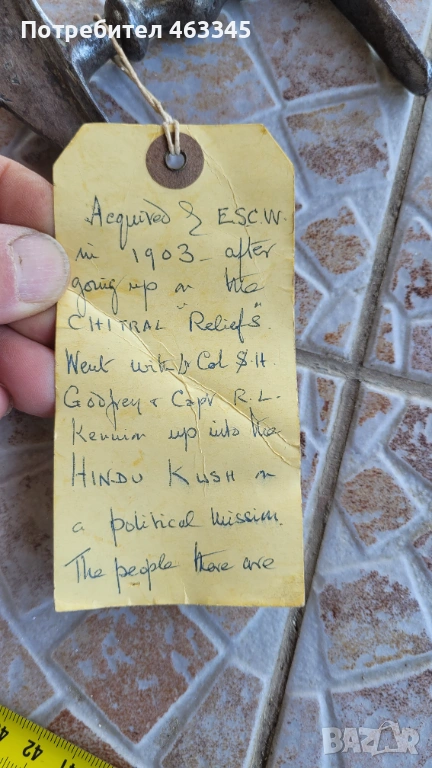 Потребител 463345
Acquired by E.S.C.W.
in 1903 - after
going up on the
CHITRAL "Reliefs".
Went with Lt Col S.H.
Godfrey & Capt R.L.
Kennion up into the
HINDU KUSH on
a political mission.
The people there are
BAZAR
41
42